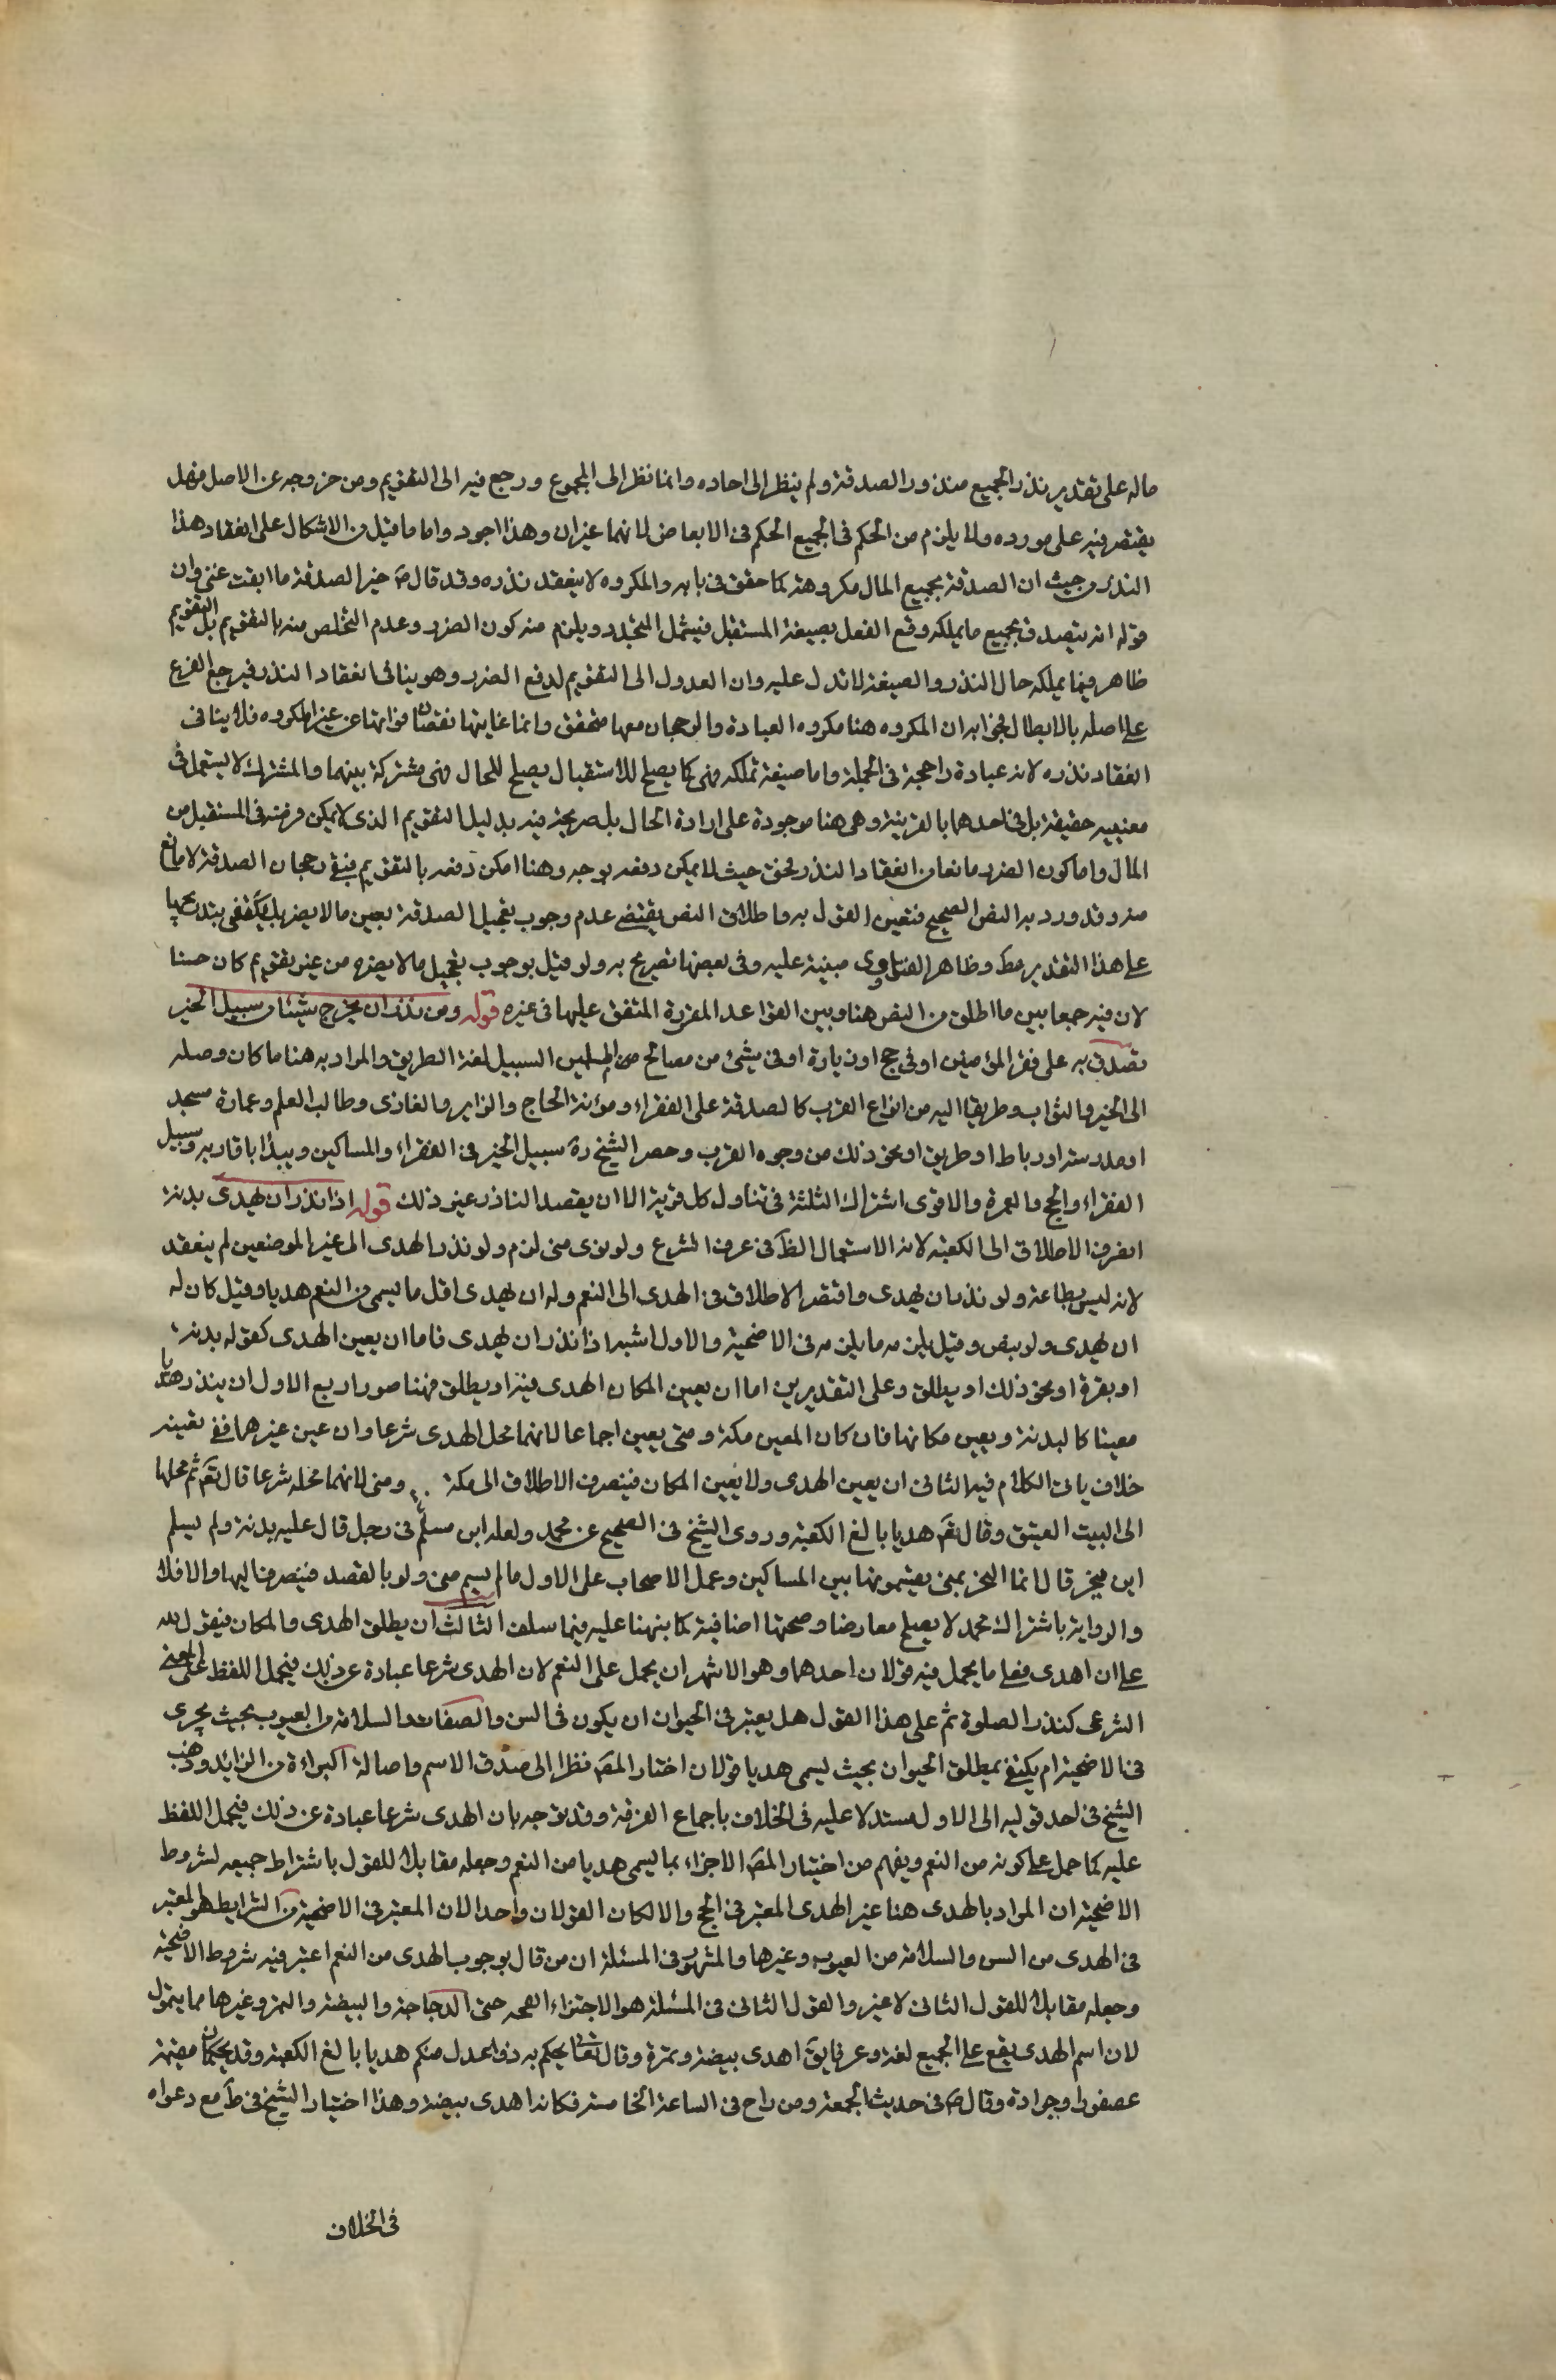 ماله على تقدير نذر الجميع منذور الصدقة ولم ينظر الى احاده وانما نظر الى المجموع ورجع فيه الى التقويم ومن خروجه عن الاصل
يقتصر فيه على مورده ولا يلزم من الحكم في الجميع الحكم في الابعاض لانهما غيران وهذا اجود واما ما قيل من الاشكال على انعقاد هذا
النذر من حيث ان الصدقة بجميع المال مكروهة كما حقق في بابه والمكروه لا ينعقد نذره وقد قال ص خير الصدقة ما ابقت غنى وان
قوله انه يتصدق بجميع ما يملكه وقع الفعل بصيغة المستقبل فيشمل المتجدد ويلزم منه كون الضرر وعدم التخلص منه بالتقويم بل التقويم
ظاهر فيما يملكه حال النذر والصيغة لا تدل عليه وان العدول الى التقويم لدفع الضرر وهو ينافي انعقاد النذر فيرجع الفرع
على اصله بالابطال فجوابه ان المكروه هنا مكروه العبادة والرجحان معها متحقق وانما غايتها نقصان ثوابها عن غير المكروه فلا ينافي
انعقاد نذره لانه عبادة راجحة في الجملة واما صيغة تملكه فهى كما يصلح للاستقبال يصلح للحال فهى مشتركة بينهما والمشترك لا يستعمل في
معنييه حقيقة بل في احدهما بالقرينة وهى هنا موجودة على ارادة الحال بل صريحة فيه بدليل التقويم الذى لا يمكن فرضه في المستقبل من
المال واما كون الضرر مانعا من انعقاد النذر فحق حيث لا يمكن دفعه بوجه وهنا امكن دفعه بالتقويم فبقى رجحان الصدقة لا مانع
منه وقد ورد به النص الصحيح فتعين القول به واطلاق النص يقتضي عدم وجوب تعجيل الصدقة بعين ما لا يضر بل يكفى تدريجها
على هذا التقدير مط وظاهر الفتاوى مبنية عليه وفى بعضها تصريح به ولو قيل بوجوب تعجيل ما لا يضره من غير تقويم كان حسنا
لان فيه جمعا بين ما اطلق من النص هنا وبين القواعد المقررة المتفق عليها في غيره قوله ومن نذر ان يخرج شيئا من سبيل الخير
تصدق به على فقراء المؤمنين او في حج او زيارة او في شئ من مصالح المسلمين السبيل لغة الطريق والمراد به هنا ما كان وصلة
الى الخير والثواب وطريقا اليه من انواع القرب كالصدقة على الفقراء ومؤنة الحاج والزاير والغازى وطالب العلم وعمارة مسجد
او مدرسة او رباط او طريق او نحو ذلك من وجوه القرب وحصر الشيخ ره سبيل الخير في الفقراء والمساكين ويبدأ باقاربه وسبيل
الفقراء والحج والعمرة والاقوى اشتراك الثلثة في تناول كل قربة الا ان يقصد الناذر غير ذلك قوله اذا نذر ان يهدى بدنة
انصرف الاطلاق الى الكعبة لانه الاستعمال الظ في عرف الشرع ولو نوى منى لزم ولو نذر الهدى الى غير الموضعين لم ينعقد
لانه ليس بطاعة ولو نذر ان يهدى واقتصر الاطلاق في الهدى الى النعم وله ان يهدى اقل ما يسمى من النعم هديا وقيل كان له
ان يهدى ولو بيض وقيل يلزمه ما يلزمه في الاضحية والاول اشبه اذا نذر ان يهدى فاما ان يعين الهدى كقوله بدنة
او بقرة او نحو ذلك او يطلق وعلى التقديرين اما ان يعين المكان الهدى فيه او يطلق فهنا صور اربع الاول ان ينذر هديا
معينا كالبدنة ويعين مكانها فان كان المعين مكة ومنى يعين اجماعا لانهما محل الهدى شرعا وان عين غيرهما ففى تعينه
خلاف ياتى الكلام فيه الثانى ان يعين الهدى ولا يعين المكان فينصرف الاطلاق الى مكة ومنى لانهما محله شرعا قال تعم ثم محلها
الى البيت العتيق وقال تعم هديا بالغ الكعبة وروى الشيخ في الصحيح عن محمد ولعله ابن مسلم في رجل قال عليه بدنة ولم يسم
اين ينحر قال انما النحر بمنى يقسمونها بين المساكين وعمل الاصحاب على الاول ما لم يسم منى ولو بالقصد فينصرف اليها والا فلا
والرواية باشتراك محمد لا يصلح معارضا وصحتها اضافية كما نبهنا عليه فيما سلف الثالث ان يطلق الهدى والمكان فيقول لله
على ان اهدى فعلى ما يحمل فيه قولان احدهما وهو الاشهر ان يحمل على النعم لان الهدى شرعا عبادة عن ذلك فيحمل اللفظ على المعنى
الشرعى كنذر الصلوة ثم على هذا القول هل يعتبر في الحيوان ان يكون في السن والصفات والسلامة من العيوب بحيث يجزى
في الاضحية ام يكتفى بمطلق الحيوان بحيث يسمى هديا قولان اختار المص نظرا الى صدق الاسم واصالة البراءة من الزائد وذهب
الشيخ في احد قوليه الى الاول مستدلا عليه في الخلاف باجماع الفرقة وقد يوجه بان الهدى شرعا عبادة عن ذلك فيحمل اللفظ
عليه كما حمل على كونه من النعم ويفهم من اختيار المص الاجزاء بما يسمى هديا من النعم وجعله مقابلا للقول باشتراط جميعه لشروط
الاضحية ان المراد بالهدى هنا غير الهدى المعتبر في الحج والا لكان القولان واحدا لان المعتبر في الاضحية من الشرايط هو المعتبر
في الهدى من السن والسلامة من العيوب وغيرها والمشهور في المسئلة ان من قال بوجوب الهدى من النعم اعتبر فيه شروط الاضحية
وجعله مقابلا للقول الثانى لا غير والقول الثانى في المسئلة هو الاجتزاء حتى الدجاجة والبيضة والتمر وغيرها مما يتمول
لان اسم الهدى يقع على الجميع لغة وعرفا يق اهدى بيضة وتمرة وقال تعالى يحكم به ذوا عدل منكم هديا بالغ الكعبة وقد يحكمان بقيمة
عصفور او جرادة وقال ص في حديث الجمعة ومن راح في الساعة الخامسة فكانما اهدى بيضة وهذا اختيار الشيخ في ط مع دعواه
في الخلاف